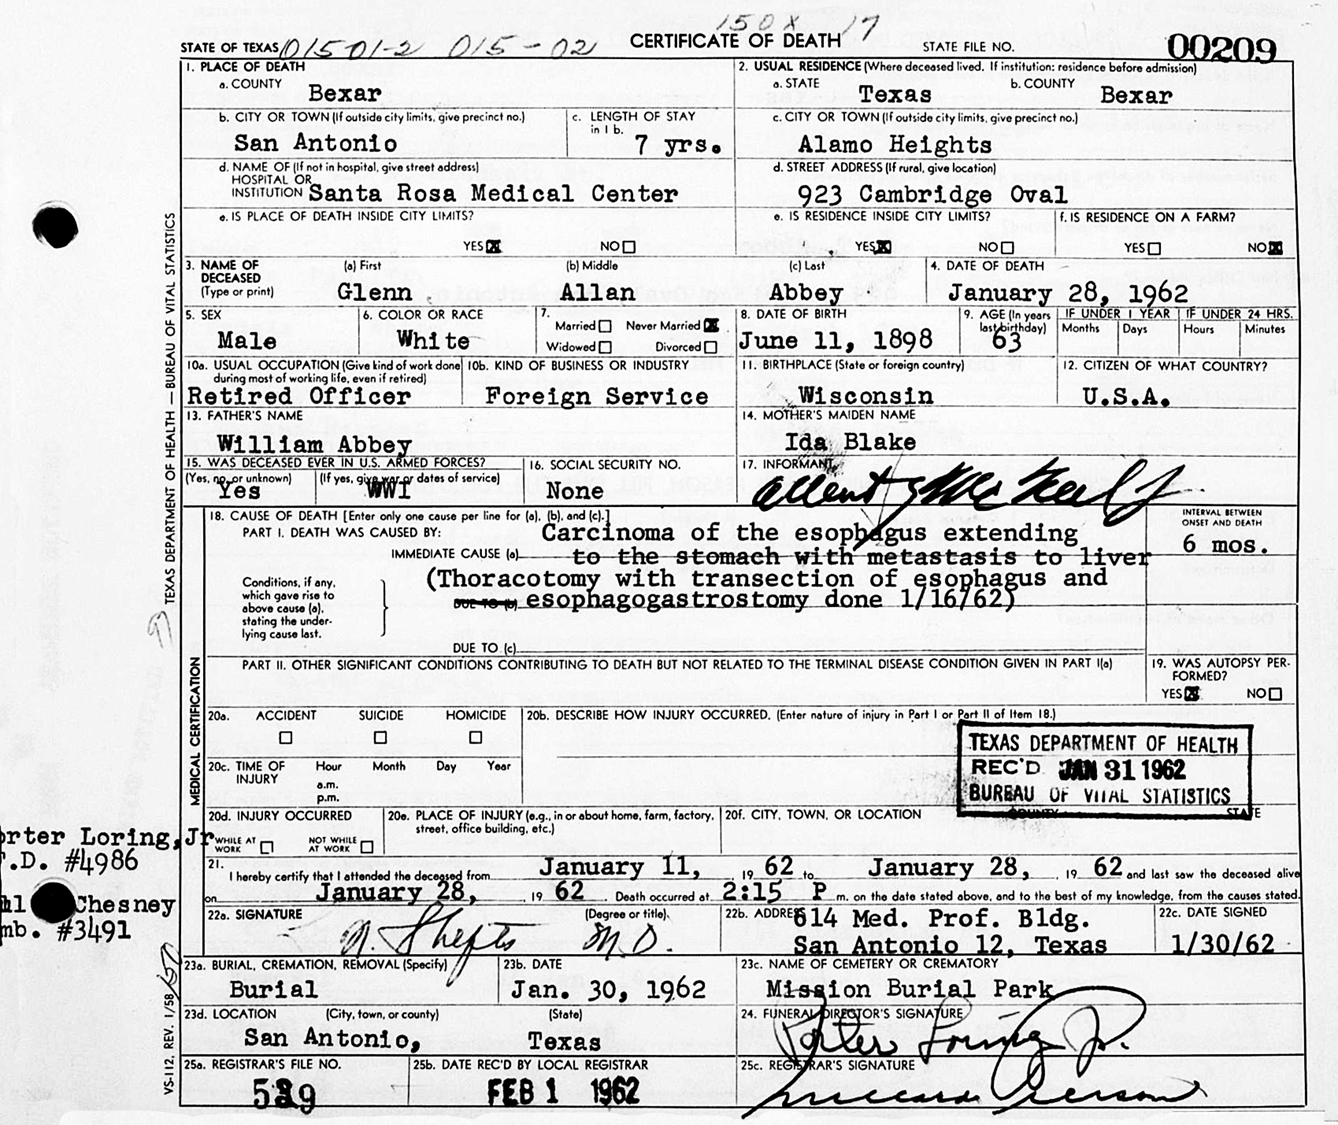 150X 17
STATE OF TEXAS 01501-2 015-02 CERTIFICATE OF DEATH STATE FILE NO. 00209
1. PLACE OF DEATH
a. COUNTY
Bexar
2. USUAL RESIDENCE (Where deceased lived. If institution: residence before admission)
a. STATE
Texas
b. COUNTY
Bexar
b. CITY OR TOWN (If outside city limits, give precinct no.)
San Antonio
c. LENGTH OF STAY
in 1 b.
7 yrs.
c. CITY OR TOWN (If outside city limits, give precinct no.)
Alamo Heights
d. NAME OF (If not in hospital, give street address)
HOSPITAL OR
INSTITUTION Santa Rosa Medical Center
d. STREET ADDRESS (If rural, give location)
923 Cambridge Oval
e. IS PLACE OF DEATH INSIDE CITY LIMITS?
YES NO
e. IS RESIDENCE INSIDE CITY LIMITS?
YES NO
f. IS RESIDENCE ON A FARM?
YES NO
3. NAME OF
DECEASED
(Type or print)
(a) First
Glenn
(b) Middle
Allan
(c) Last
Abbey
4. DATE OF DEATH
January 28, 1962
5. SEX
Male
6. COLOR OR RACE
White
7.
Married Never Married
Widowed Divorced
8. DATE OF BIRTH
June 11, 1898
9. AGE (In years
last birthday)
63
IF UNDER 1 YEAR
Months Days
IF UNDER 24 HRS.
Hours Minutes
10a. USUAL OCCUPATION (Give kind of work done
during most of working life, even if retired)
Retired Officer
10b. KIND OF BUSINESS OR INDUSTRY
Foreign Service
11. BIRTHPLACE (State or foreign country)
Wisconsin
12. CITIZEN OF WHAT COUNTRY?
U.S.A.
13. FATHER'S NAME
William Abbey
14. MOTHER'S MAIDEN NAME
Ida Blake
15. WAS DECEASED EVER IN U.S. ARMED FORCES?
(Yes, no, or unknown)
Yes
(If yes, give war or dates of service)
WWI
16. SOCIAL SECURITY NO.
None
17. INFORMANT
18. CAUSE OF DEATH [Enter only one cause per line for (a), (b), and (c).]
PART I. DEATH WAS CAUSED BY:
IMMEDIATE CAUSE (a)
Carcinoma of the esophagus extending
to the stomach with metastasis to liver
(Thoracotomy with transection of esophagus and
DUE TO (b) esophagogastrostomy done 1/16/62)
Conditions, if any,
which gave rise to
above cause (a),
stating the under-
lying cause last.
DUE TO (c)
INTERVAL BETWEEN
ONSET AND DEATH
6 mos.
PART II. OTHER SIGNIFICANT CONDITIONS CONTRIBUTING TO DEATH BUT NOT RELATED TO THE TERMINAL DISEASE CONDITION GIVEN IN PART I(a)
19. WAS AUTOPSY PER-
FORMED?
YES NO
20a. ACCIDENT SUICIDE HOMICIDE
20b. DESCRIBE HOW INJURY OCCURRED. (Enter nature of injury in Part I or Part II of Item 18.)
20c. TIME OF
INJURY
Hour Month Day Year
a.m.
p.m.
TEXAS DEPARTMENT OF HEALTH
REC'D JAN 31 1962
BUREAU OF VITAL STATISTICS
20d. INJURY OCCURRED
WHILE AT
WORK
NOT WHILE
AT WORK
20e. PLACE OF INJURY (e.g., in or about home, farm, factory,
street, office building, etc.)
20f. CITY, TOWN, OR LOCATION COUNTY STATE
21.
I hereby certify that I attended the deceased from January 11, 19 62 to January 28, 19 62 and last saw the deceased alive
on January 28, 19 62 Death occurred at 2:15 P m. on the date stated above, and to the best of my knowledge, from the causes stated.
22a. SIGNATURE
(Degree or title)
M.D.
22b. ADDRESS
614 Med. Prof. Bldg.
San Antonio 12, Texas
22c. DATE SIGNED
1/30/62
23a. BURIAL, CREMATION, REMOVAL (Specify)
Burial
23b. DATE
Jan. 30, 1962
23c. NAME OF CEMETERY OR CREMATORY
Mission Burial Park
23d. LOCATION (City, town, or county) (State)
San Antonio, Texas
24. FUNERAL DIRECTOR'S SIGNATURE
Porter Loring Jr.
25a. REGISTRAR'S FILE NO.
539
25b. DATE REC'D BY LOCAL REGISTRAR
FEB 1 1962
25c. REGISTRAR'S SIGNATURE
TEXAS DEPARTMENT OF HEALTH — BUREAU OF VITAL STATISTICS
MEDICAL CERTIFICATION
VS-112, REV. 1/58
rter Loring, Jr
.D. #4986
Chesney
mb. #3491